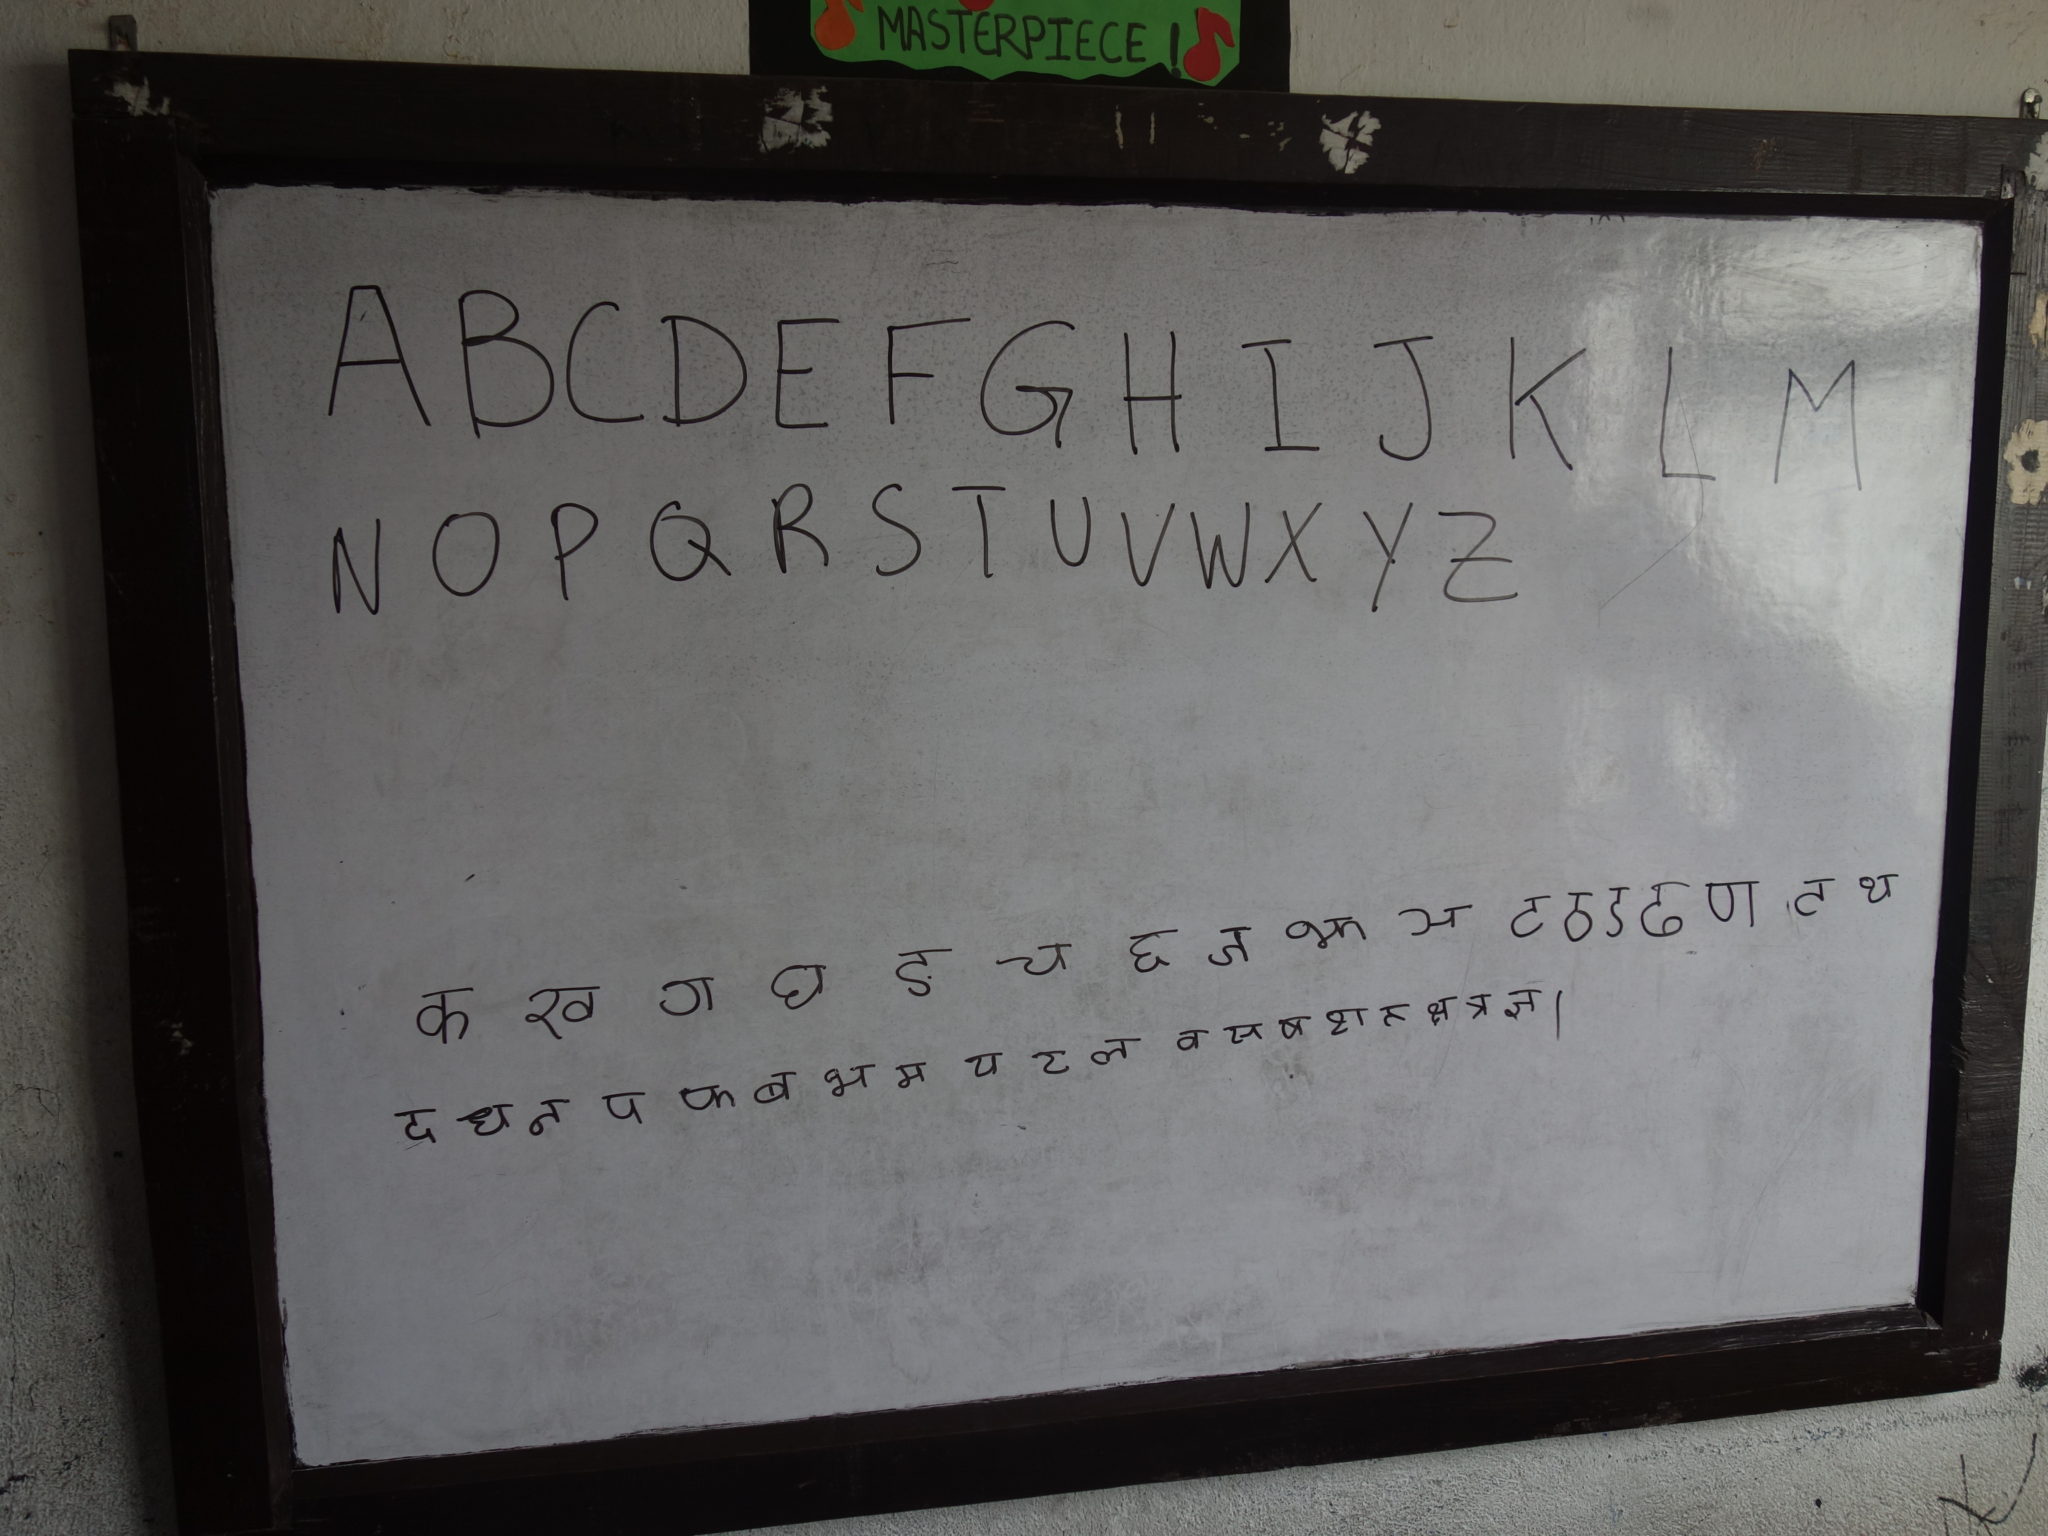 MASTERPIECE!
A B C D E F G H I J K L M
N O P Q R S T U V W X Y Z
क ख ग घ ङ च छ ज झ ञ ट ठ ड ढ ण त थ
द ध न प फ ब भ म य र ल व स ष श ह क्ष त्र ज्ञ।